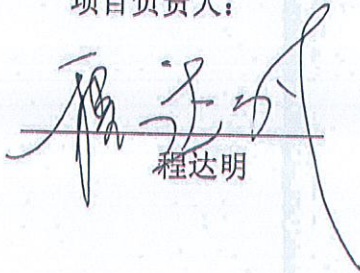 项目负责人：
程达明
程达明